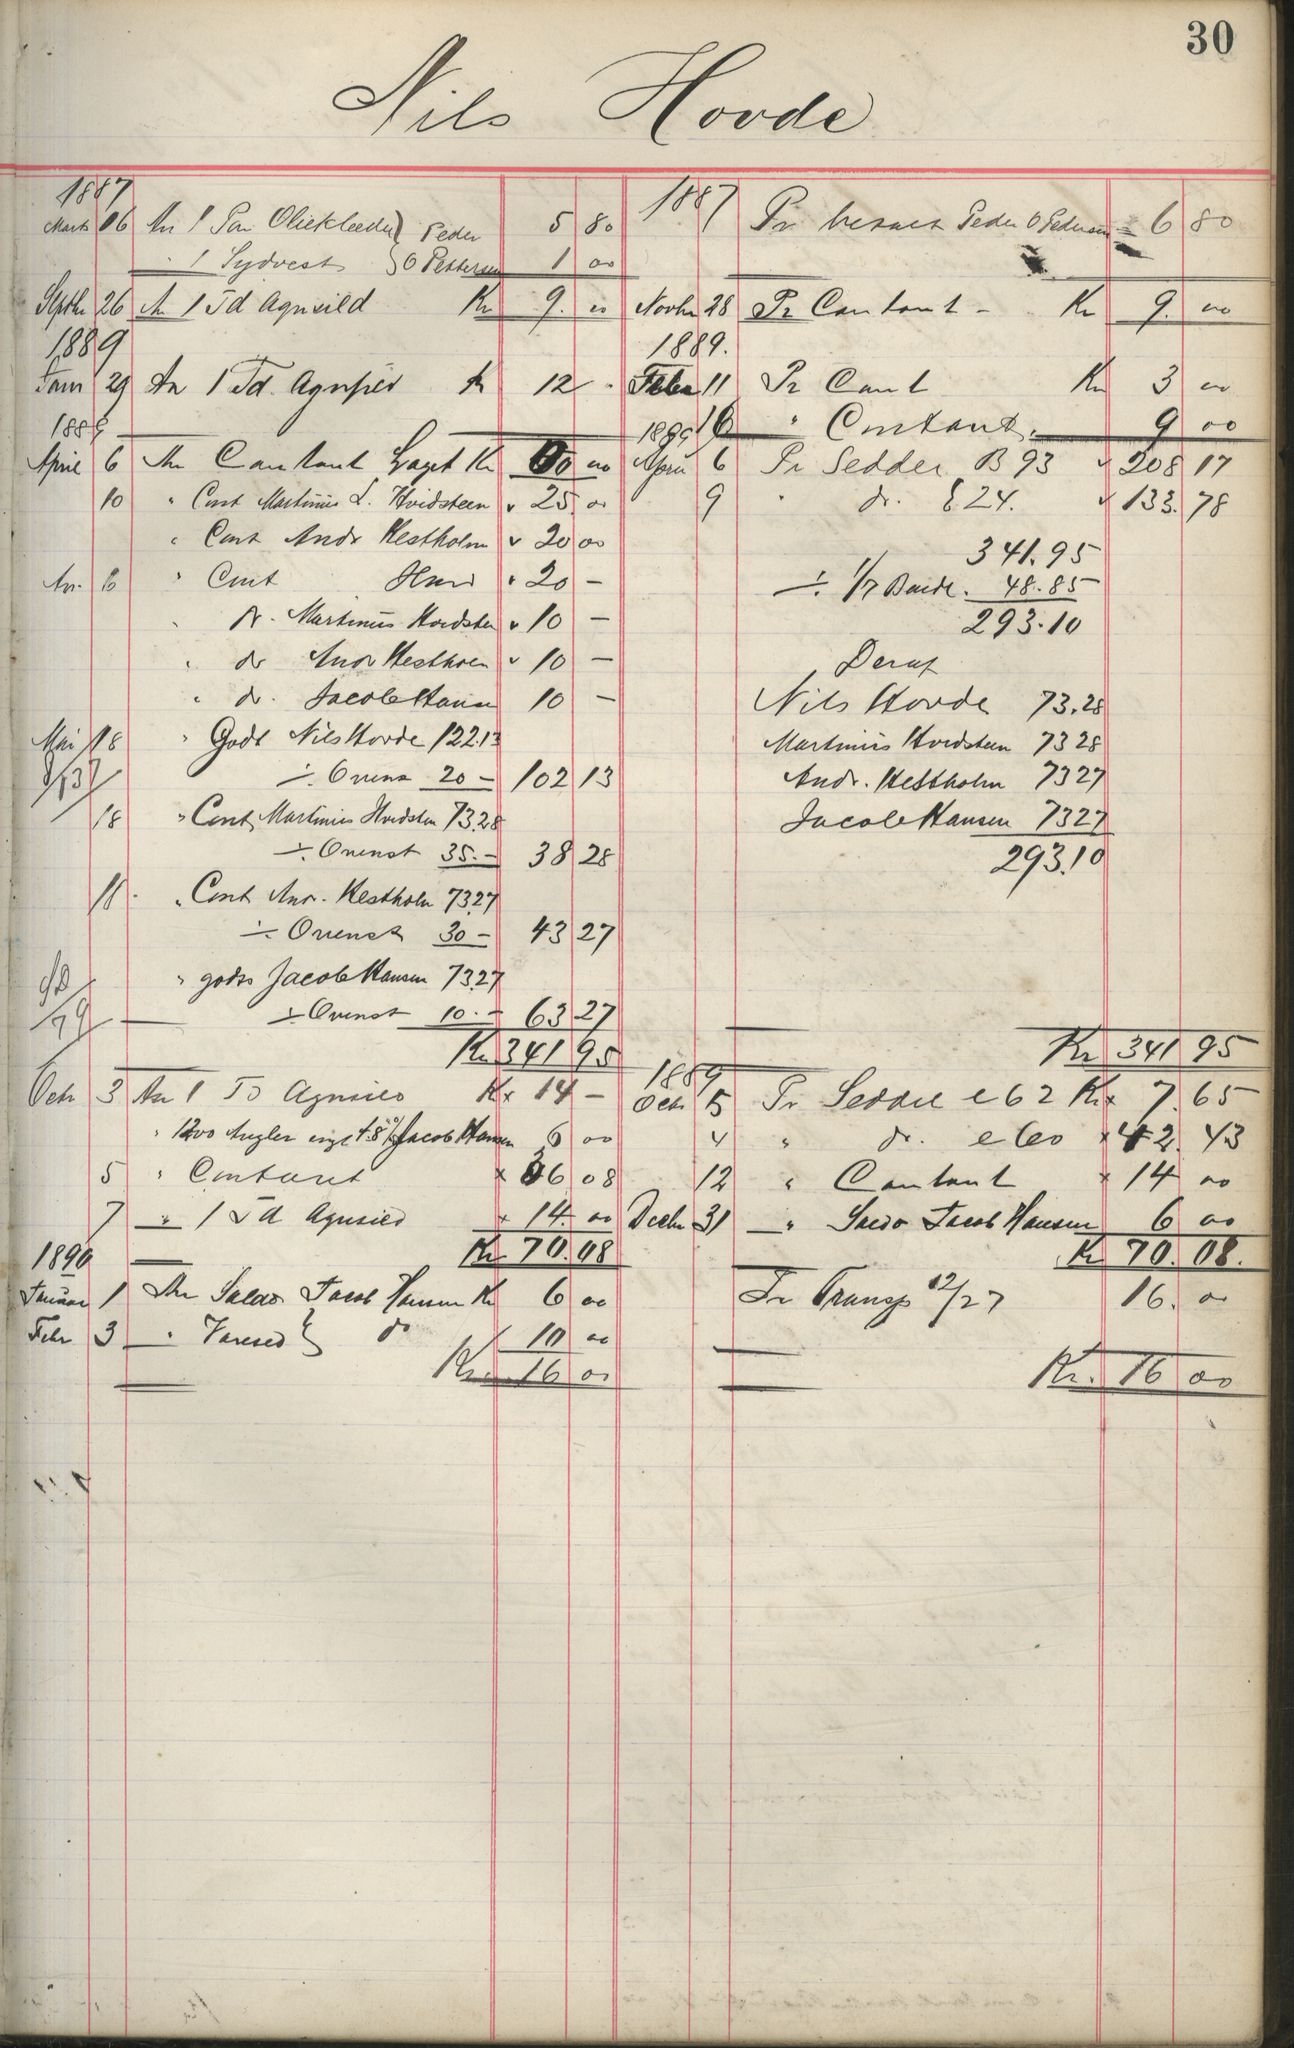 30
Nils Hovde
1887
Marts 16 An 1 Par Olieklæder } Peder 5 80
" 1 Sydvest } O Pettersen 1 00
Septbr 26 An 1 Td Agnsild Kr 9. 00
1889
Janr 29 An 1 Td. Agnsild Kr 12 -
1889
April 6 An Contant Laget Kr 00
10 " Cont Martinus L. Hvidsteen " 25. 00
" Cont Andr Hestholm " 20 00
Ap. 6 " Cont Hans " 20 -
" dr. Martinus Hvidsten " 10 -
" dr Andr Hestholm " 10 -
" dr. Jacob Hansen 10 -
Mai 18 " Godt Nils Hovde 122.13
÷ Ovenst 20 - 102 13
18 " Cont, Martinus Hvidsten 73.28
÷ Ovenst 35.- 38 28
18. " Cont Andr. Hestholm 73.27
÷ Ovenst 30 - 43 27
" godts Jacob Hansen 73.27
÷ Ovenst 10.- 63 27
Kr 341 95
Octr 3 An 1 Td Agnsild Kr 14 -
" 1200 Angler Jacob Hansen 6 00
5 " Contant 36 08
7 " 1 Td Agnsild " 14. 00
Kr 70.08
1890
Januar 1 An Saldo Jacob Hansen Kr 6 00
Febr 3 " do 10 00
Kr. 16 00
1887
Pr Peder O Pedersen 6 80
Novbr 28 Pr Contant - Kr 9. 00
1889.
Febr 11 Pr Cont Kr 3 00
16 " Contant. 9 00
1889
April 6 Pr Sedder B 93 " 208 17
9 " dr. 24. " 133. 78
341.95
÷ 1/7 Baade. 48.85
293.10
Deraf
Nils Hovde 73.28
Martinus Hvidsteen 73 28
Andr. Hestholm 73 27
Jacob Hansen 73 27
293.10
Kr 341 95
1889
Octr 5 Pr Seddel e 62 Kr 7. 65
4 " dr. 42. 43
12 " Contant 14 00
Decbr 31 " Saldo Jacob Hansen 6 00
Kr 70. 08.
Pr Transp 12/27 16. 00
Kr. 16 00